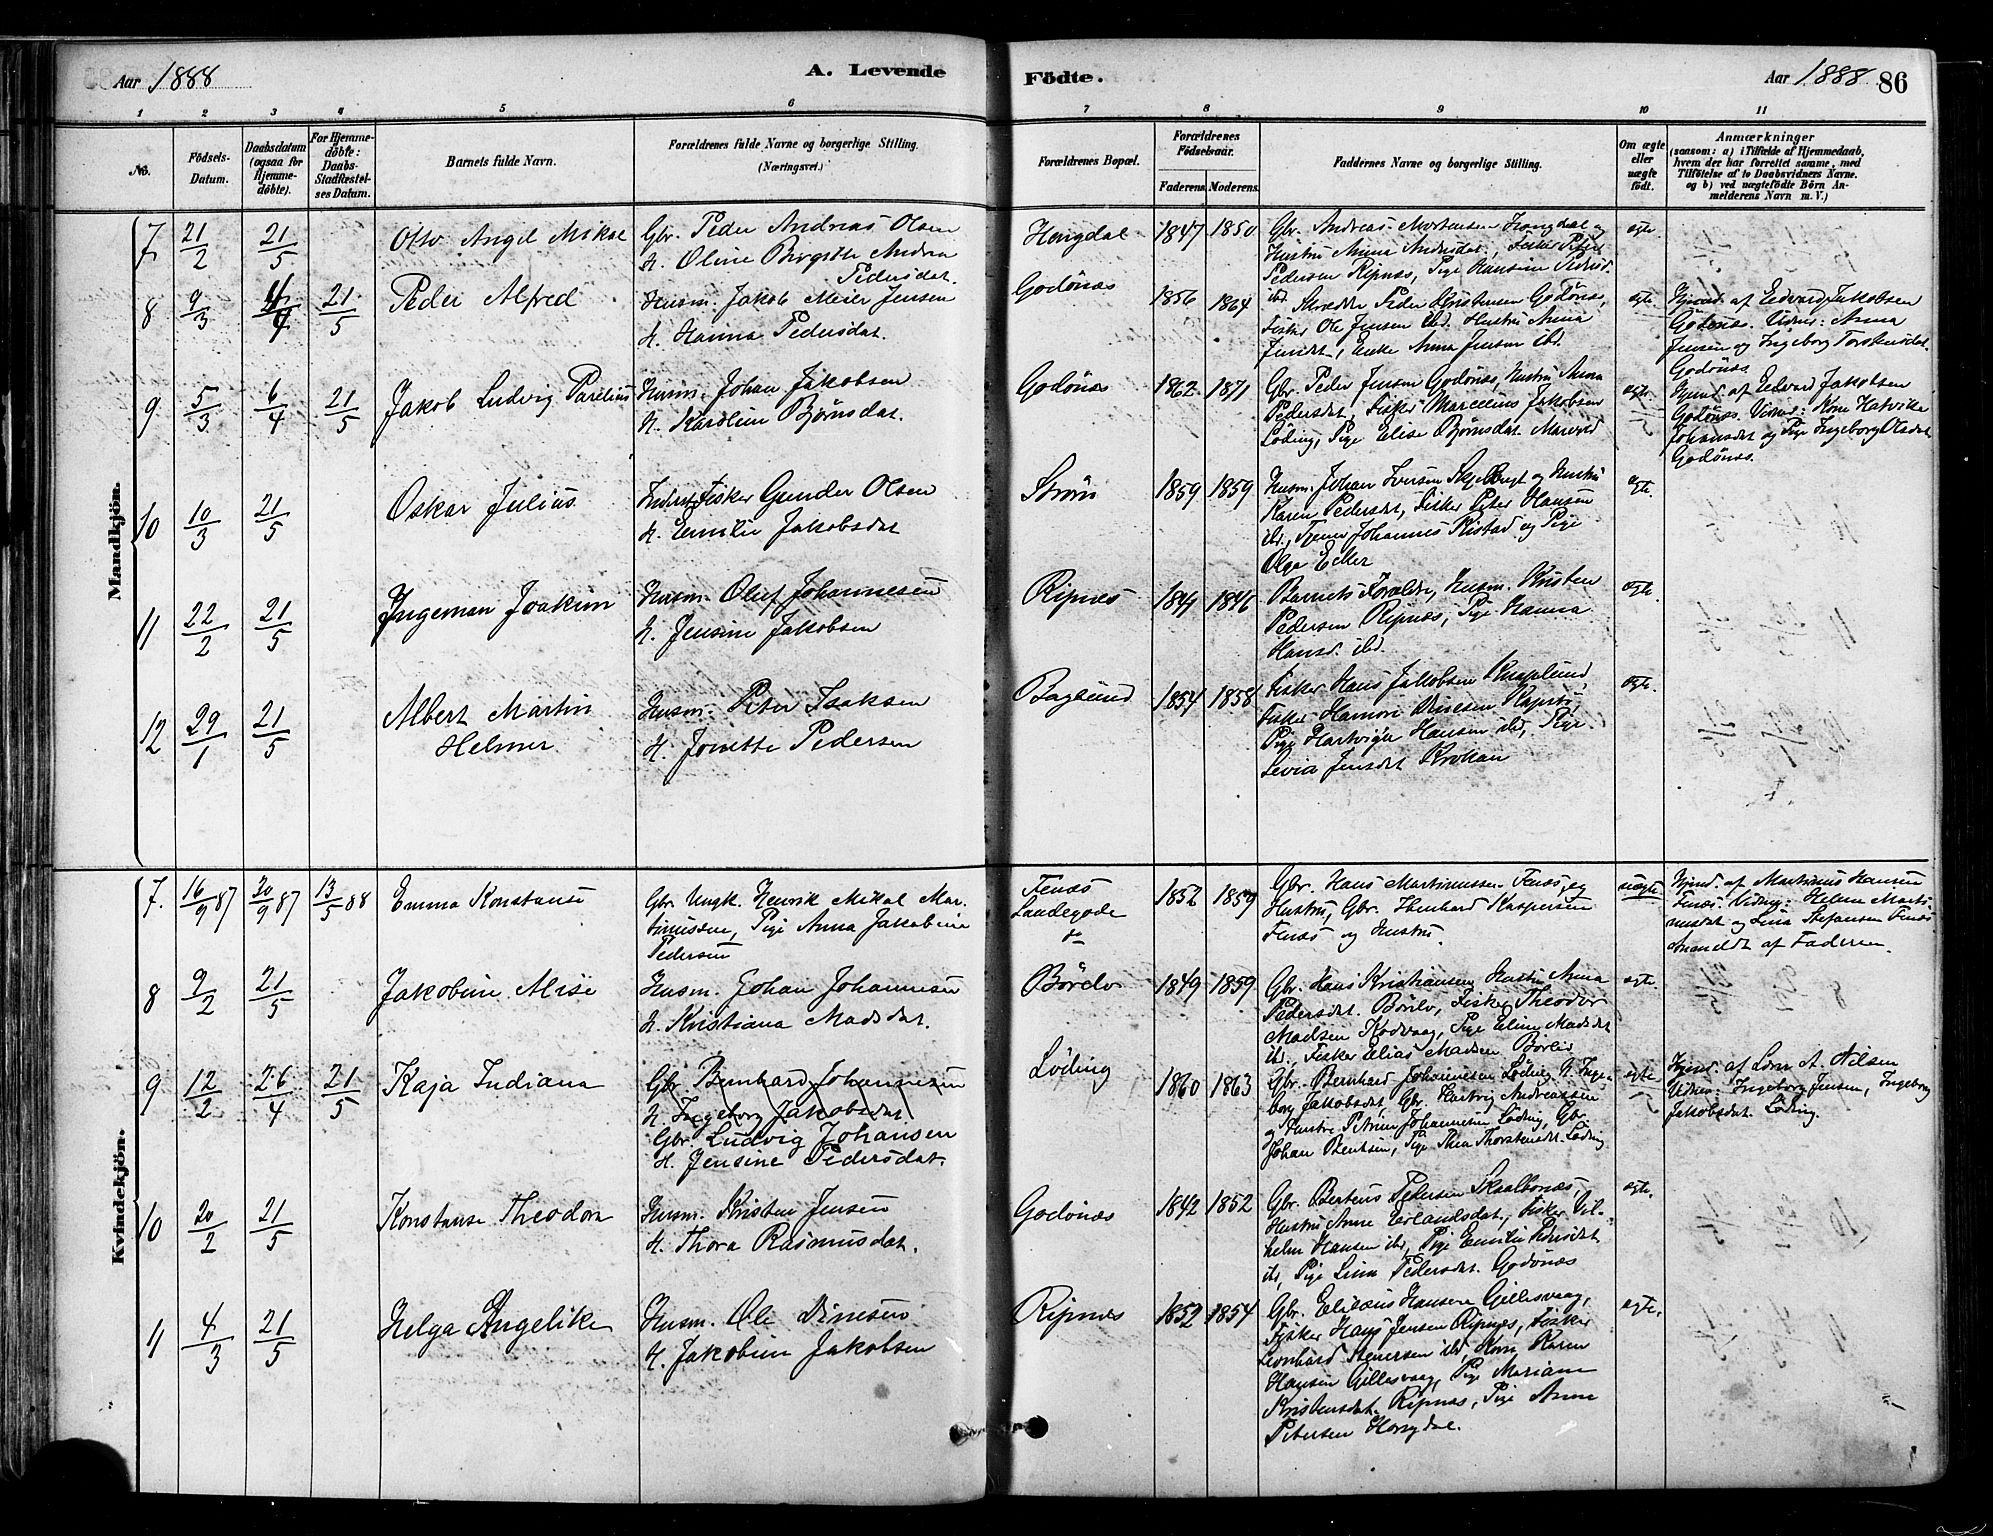 Aar 1888
A. Levende
Födte.
Aar 1888
86
1 2 3 4 5 6 7 8 9 10 11
No.
Födsels-
Datum.
Daabsdatum
(ogsaa for
Hjemme-
döbte).
For Hjemme-
döbte:
Daabs-
Stadfæstel-
ses Datum.
Barnets fulde Navn.
Forældrenes fulde Navne og borgerlige Stilling.
(Næringsvei.)
Forældrenes Bopæl.
Forældrenes
Födselsaar.
Faderens.
Moderens.
Faddernes Navne og borgerlige Stilling.
Om ægte
eller
uægte
födt.
Anmærkninger
(saasom: a) i Tilfælde af Hjemmedaab,
hvem der har forrettet samme, med
Tilföielse af to Daabsvidners Navne.
og b) ved uægtefödte Börn An-
melderens Navn m. V.)
Mandkjön.
7 21/2 21/5
Otto Angel Mikal
Gbr. Peder Andreas Olsen
H. Oline Birgitte Andrea
Pedersdat.
Hongdal 1847 1850
Gbr. Andreas Mortensen Hongdal og
Hustru Anna Andrisdat, Fisker Peter
Pedersen Ripnæs, Pige Hansine Pedersd.
ibd.
ægte.
8 9/3 4/4 21/5
Peder Alfred
Husm. Jakob Meier Jensen
H. Hanna Pedersdat.
Godönæs 1856 1864
Skrædder Peder Kristensen Godönæs,
Fisker Ole Jensen ibd. Hustru Anna
Jensdt, Enke Anna Jensen ibd.
ægte.
Hjmd. af Edvard Jakobsen
Godönæs. Vidner: Anna
Jensen og Ingeborg Torstensdat.
Godönæs
9 5/3 6/4 21/5
Jakob Ludvig Parelius
Husm. Johan Jakobsen
H. Karoline Bjørnsdat.
Godönæs 1862 1871
Gbr. Peder Jensen Godönæs, Hustru Anna
Pedersdt, Fisker Marcelius Jakobsen
Löding, Pige Elise Bjørnsdat.
ægte.
Hjmd. af Edvard Jakobsen
Godönæs. Vidner: Kone Hatvika
Johansdat og Pige Ingeborg Olsdat
Godönæs.
10 10/3 21/5
Oskar Julius
Inderst Fisker Gunder Olsen
H. Emilie Jakobsdat
Ström 1859 1859
Husm. Johan Iversen Skjelbugt og Hustru
Karen Pedersdt, Fisker Peter Hansen
ibd., Tjener Johannes Kistad og Pige
Olga
ægte.
11 22/2 21/5
Ingeman Joakim
Husm. Oluf Johannesen
H. Jensine Jakobsen
Ripnæs 1844 1846
Barnets Forældre, Husm. Kristen
Pedersen Ripnæs, Pige Hanna
Hansd. ibd.
ægte.
12 29/1 21/5
Albert Martin
Helmer
Husm. Peter Isaksen
H. Jonette Pedersen
Bagsund 1854 1858
Fisker Hans Jakobsen Knaplund,
Fisker
Pige Hartvigh Hansen ibd, Pige
Levia Jensdat Krokan
ægte.
Kvindekjön.
7. 16/9 87 30/9 87 13/5 88
Emma Konstanse
Gbr. Ungk. Henrik Mikal Mar-
tinussen, Pige Anna Jakobine
Pedersen
Fenæs
Landegode
1852 1859
Gbr. Hans Martinussen Fenæs, og
Hustru, Gbr. Edenhard Kaspersen
Fenæs og Hustru.
uægte.
Hjmd. af Martinus Hansen
Fenæs. Vidner: Helene Marti-
nusdat og Lina Stefansen Fenæs
Anmeldt af Faderen.
8 9/2 21/5
Jakobine Alise
Husm. Johan Johannesen
H. Kristiana Madsdat.
Börelv 1849 1859
Gbr. Hans Kristiansen, Hustru Anna
Pedersdat. Börelv, Fisker Theodor
Madsen Kodvaag, Pige Eline Madsdt
ibd., Fisker Elias Madsen Börelv
ægte.
9 12/2 26/4 21/5
Kaja Indiana
Gbr Bernhard Johannesen
H. Ingeborg Jakobsdat
Gbr. Ludvig Johansen
H. Jensine Pedersdat.
Löding 1860 1863
Gbr. Bernhard Johannesen Löding, H. Inge-
borg Jakobsdt. Gbr. Hartvig Andreassen
og Hustru Petrine Johannesen Löding, Gbr.
Johan Bentsen, Pige Thea Thorstensdt. Löding
ægte.
Hjmd. af A. Nilsen
Vidner: Ingeborg Jensen, Ingeborg
Jakobsdat. Löding.
10 20/2 21/5
Konstanse Theodora
Husm. Kristen Jensen
H. Thora Rasmusdat.
Godönæs 1842 1852
Gbr. Berteus Pedersen Skalbonæs,
Hustru Anne Erlandsdat, Fisker Vil-
helm Hansen ibd, Pige Emilie Pedersdat
ibd, Pige Lina Pedersdat. Godönæs
ægte.
11 4/3 21/5
Helga Angelike
Husm. Ole Dinesen
H. Jakobine Jakobsen
Ripnæs 1852 1854
Gbr. Elisæus Hansen Gillesvaag,
Fisker Hans Jensen Ripnæs, Fisker
Leonhard Steversen ibd, Kone Karen
Hansen Gillesvaag, Pige Mariane
Kristensdat. Ripnæs, Pige Anne
Petersen Hongdal.
ægte.